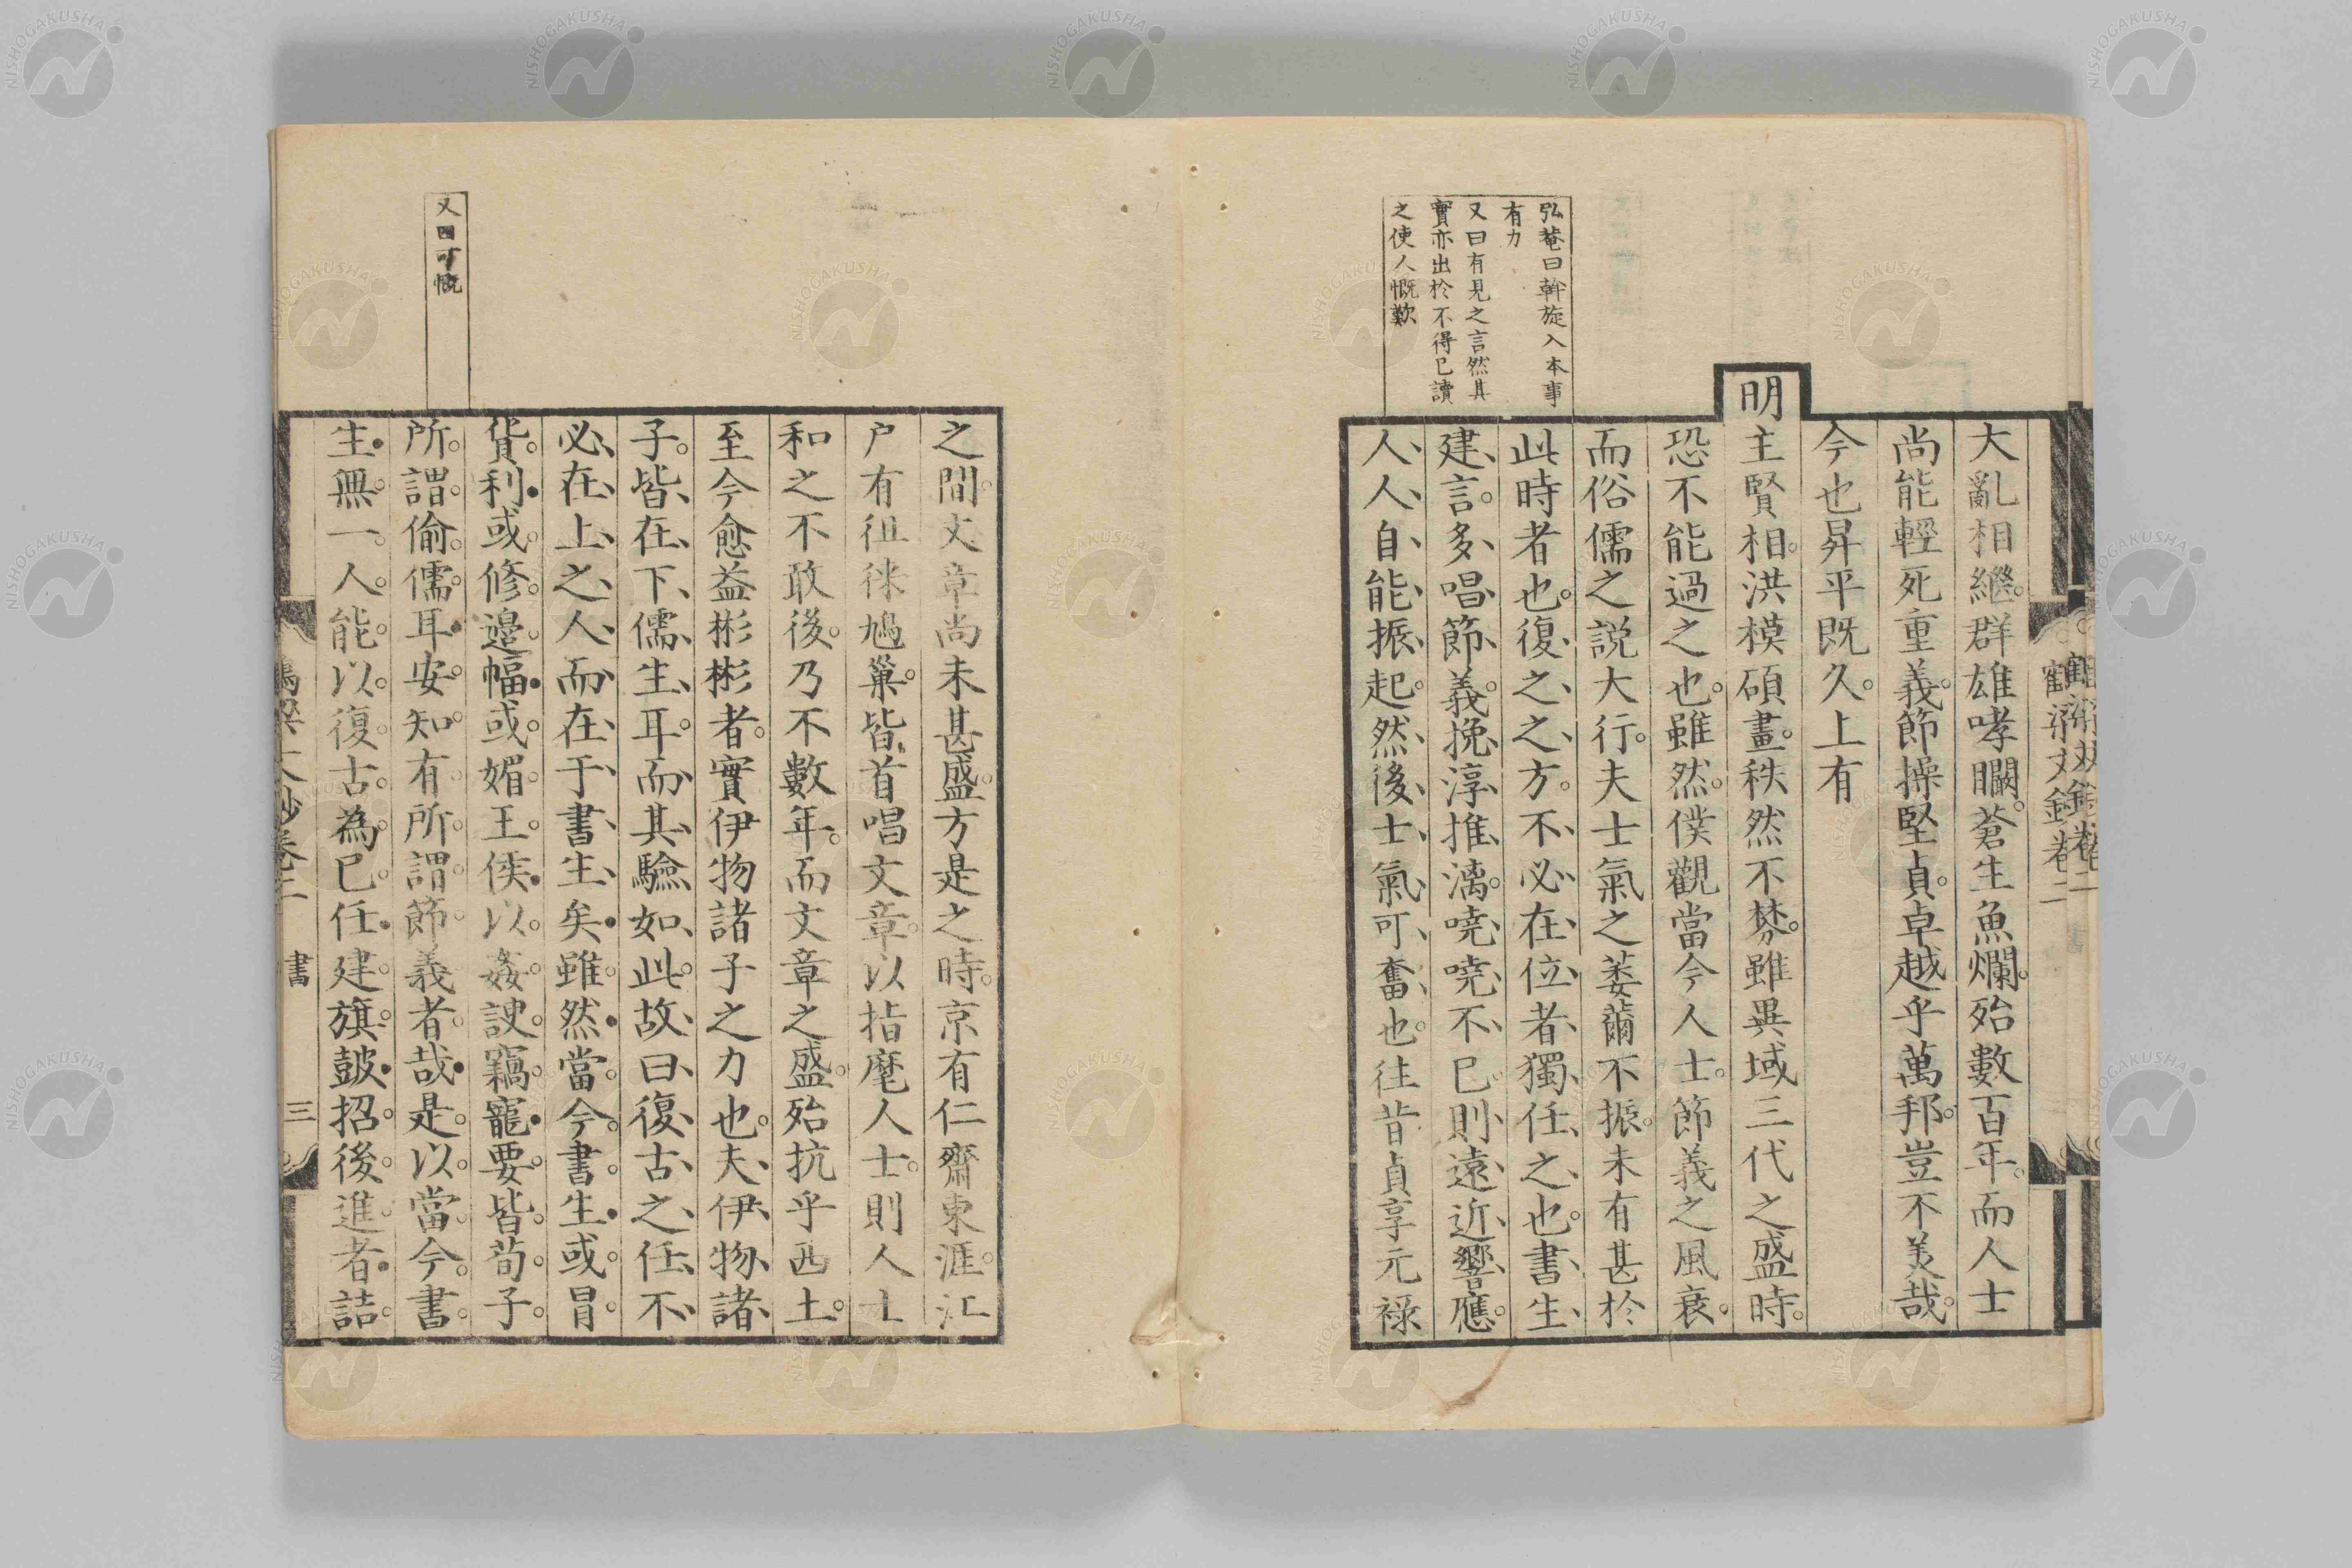 弘菴曰幹旋入本事
有力
又曰有見之言然其
實亦出於不得已讀
之使人慨歎
大亂相繼群雄哮闞蒼生魚爛殆數百年而人士
尚能輕死重義節操堅貞卓越乎萬邦豈不美哉
今也昇平既久上有
明主賢相洪模碩畫秩然不棼雖異域三代之盛時
恐不能過之也雖然僕觀當今人士節義之風衰
而俗儒之說大行夫士氣之萎薾不振未有甚於
此時者也復之之方不必在位者獨任之也書生
建言多唱節義挽淳推漓嘵嘵不已則遠近響應
人人自能振起然後士氣可奮也往昔貞享元祿
又曰可慨
之間文章尚未甚盛方是之時京有仁齋東涯江
户有徂徠鳩巢皆首唱文章以指麾人士則人士
和之不敢後乃不數年而文章之盛殆抗乎西土
至今愈益彬彬者實伊物諸子之力也夫伊物諸
子皆在下儒生耳而其驗如此故曰復古之任不
必在上之人而在于書生矣雖然當今書生或冒
貨利或修邊幅或媚王侯以姦諛竊寵要皆荀子
所謂偷儒耳安知有所謂節義者哉是以當今書
生無一人能以復古為己任建旗鼓招後進者詰
書
三
NISHOGAKUSHA